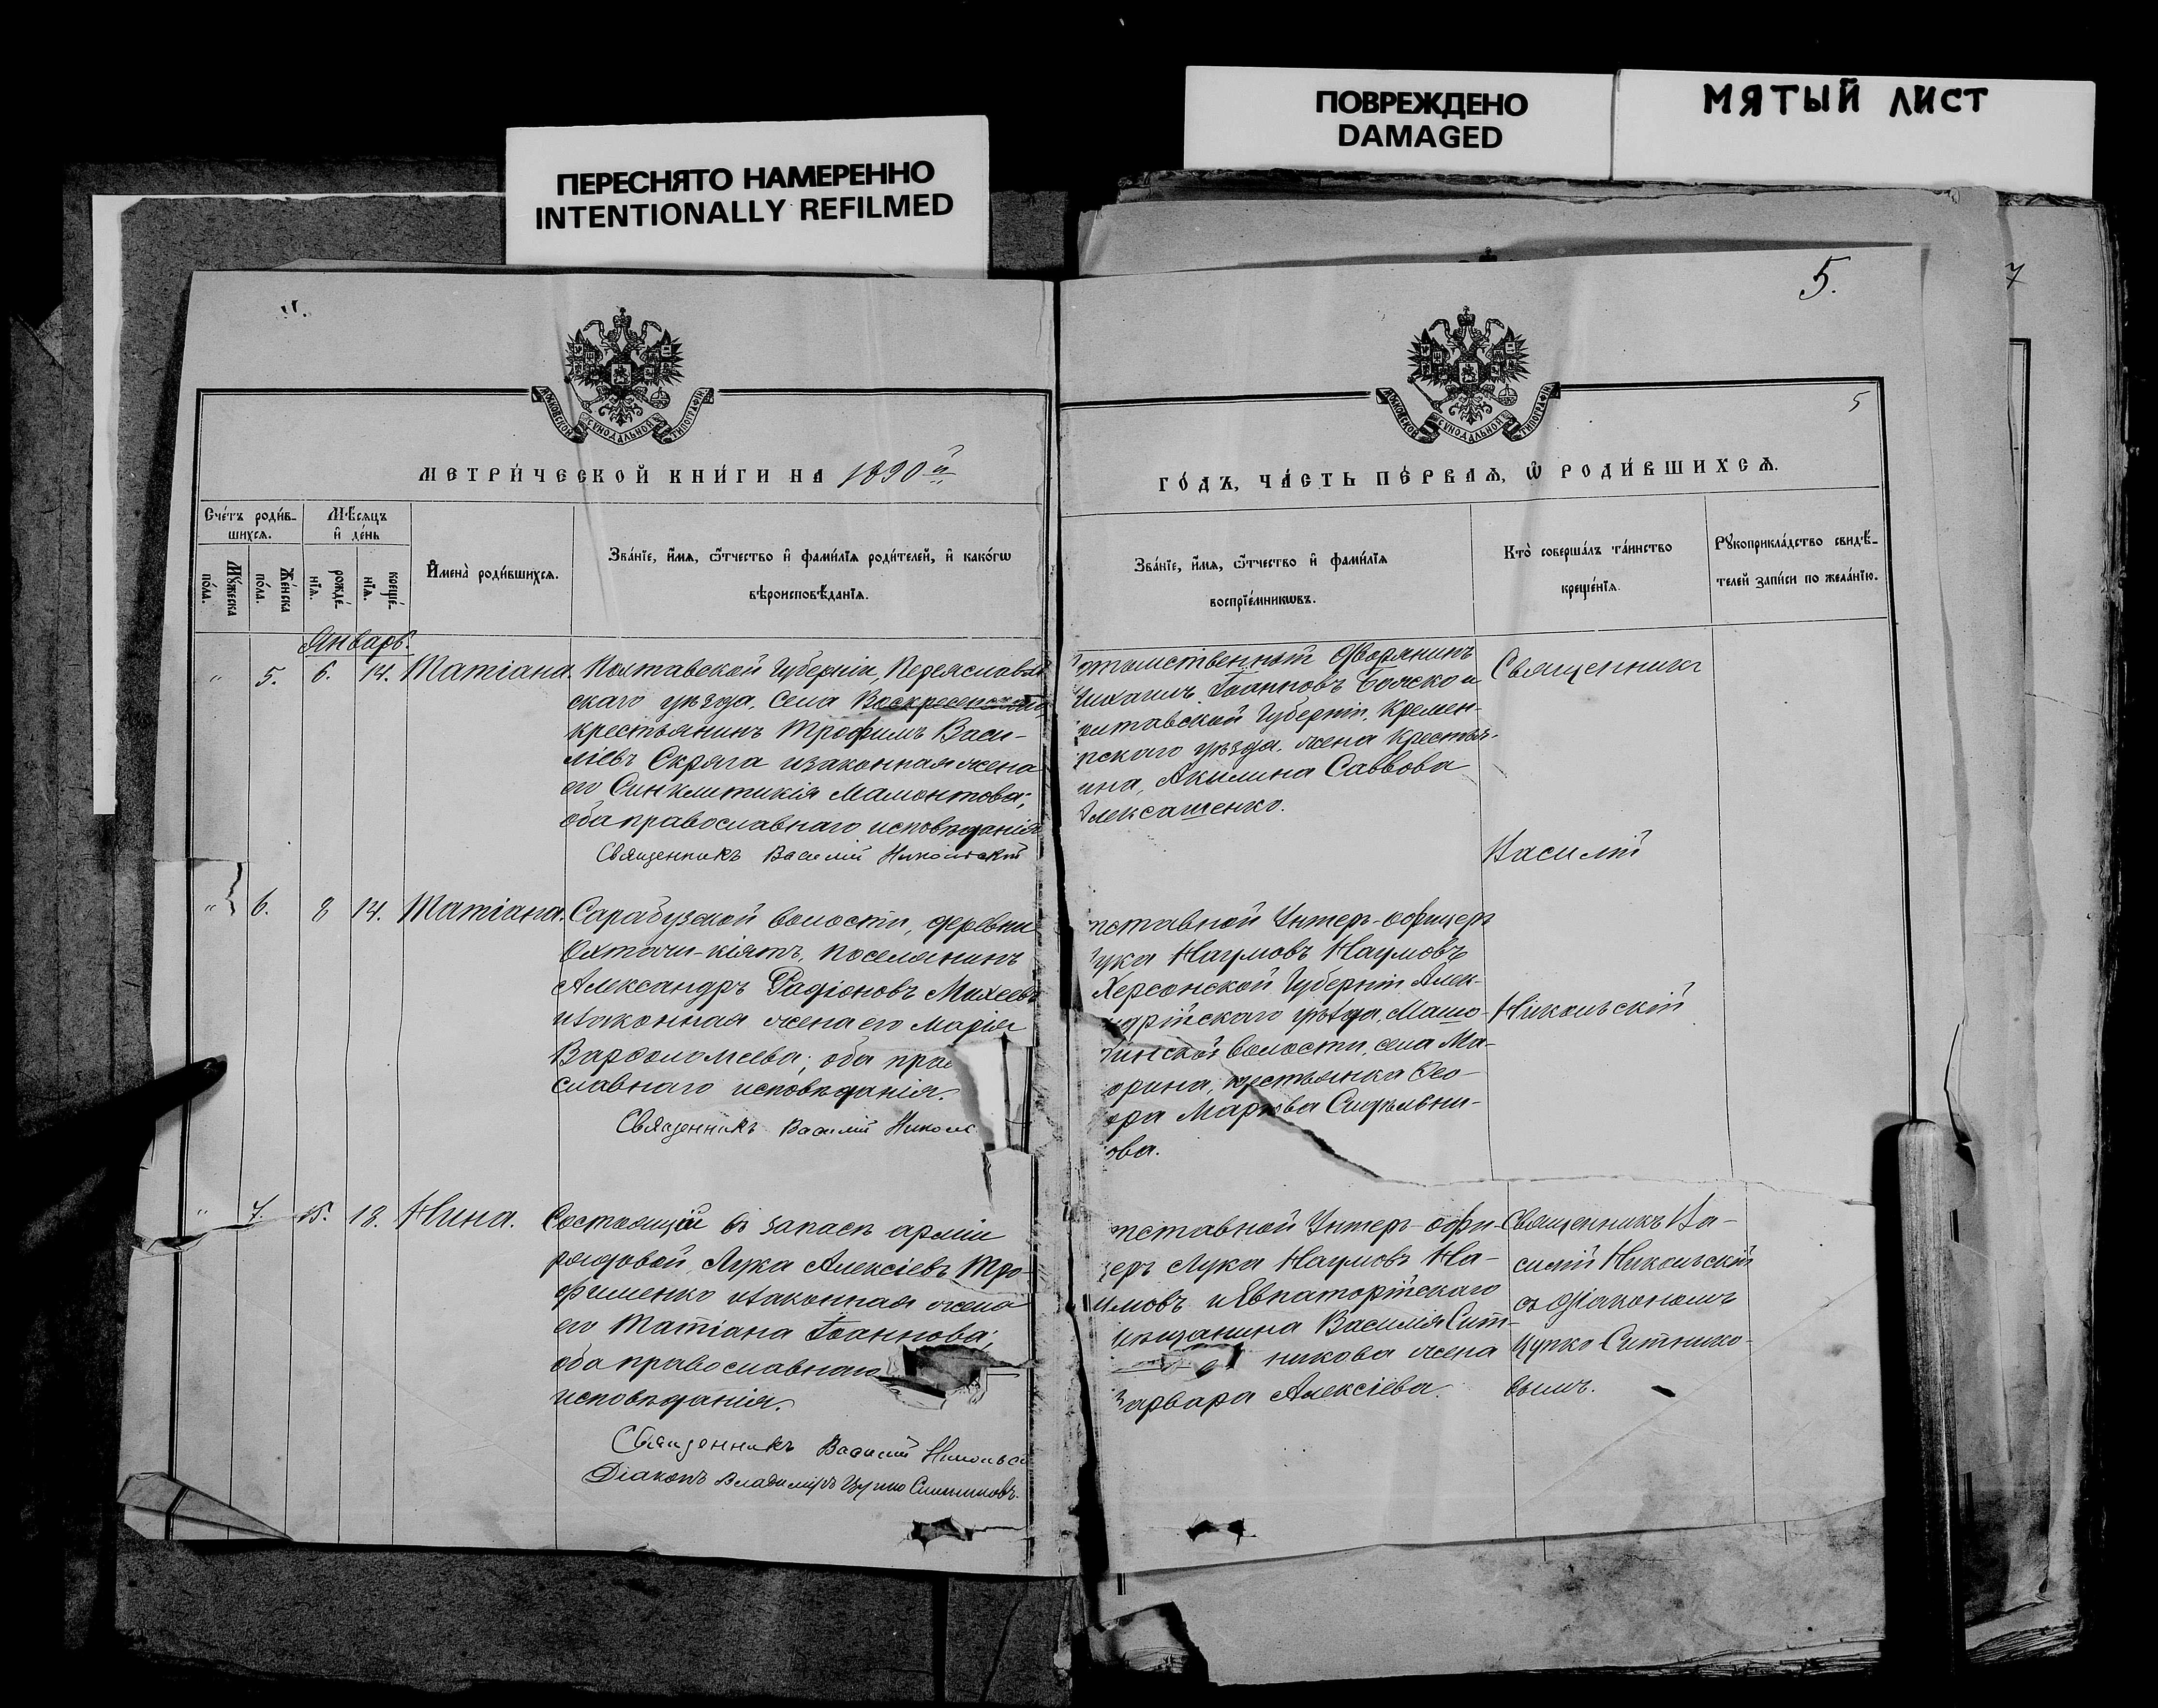 ПОВРЕЖДЕНО
DAMAGED
МЯТЫЙ ЛИСТ
ПЕРЕСНЯТО НАМЕРЕННО
INTENTIONALLY REFILMED
5.
7
МОСКОВСКОЙ СУНОДАЛЬНОЙ ТИПОГРАФІИ
МОСКОВСКОЙ СУНОДАЛЬНОЙ ТИПОГРАФІИ
5
МЕТРИ́ЧЕСКОЙ КНИ́ГИ НА 1890й
ГО́ДЪ, ЧА́СТЬ ПЕ́РВАѦ, Ѿ РОДИ́ВШИХСѦ.
Сче́тъ роди́в-
шихсѧ.
Мꙋ́жеска
по́ла.
Же́нска
по́ла.
Мѣ́сѧцъ
и҆ де́нь
рожде́-
нїѧ.
креще́-
нїѧ.
И҆мена̀ роди́вшихсѧ.
Зва́нїе, и҆́мѧ, ѻ҆́тчество и҆ фами́лїѧ роди́телей, и҆ како́гѡ
вѣроисповѣ́данїѧ.
Зва́нїе, и҆́мѧ, ѻ҆́тчество и҆ фами́лїѧ
воспрїе́мникѡвъ.
Кто̀ соверша́лъ та́инство
креще́нїѧ.
Рꙋкоприкла́дство свидѣ́-
телей за́писи по жела́нїю.
Январь.
" 5. 6. 14. Татіана. Полтавской Губерніи, Переяслов
скаго уѣзда, села Воскресенской
крестьянинъ Трофимъ Васи-
ліевъ Скряга и законная жена
его Синклитикія Мамонтова;
оба православнаго исповѣданія
Священникъ Василій Никольский
отомственный Дворянинъ
Михаилъ Іоанновъ
олтавской Губерніи, Кремен-
угскаго уѣзда, жена Крестья-
ина, Акилина Саввова
Алексашенко.
Священникъ
Василій
Никольскій
" 6. 8 14. Татіана. Сарабузской волости, деревни
Охточи-кіятъ, поселянинъ
Александръ Радіоновъ Михеевъ
и законная жена его Марія
Варѳоломеева; оба пра
славнаго исповѣданія.
Священникъ Василій Николь
тставной Унтеръ-офицеръ
Лука Наумовъ Наумовъ
Херсонской Губерніи Алек-
ндрійскаго уѣзда, Машо-
инской волости, села Ма-
орина, крестьянка Ѳео-
ора Маркова Сидельни-
ова.
" 7. 15. 18. Нина. Состоящій въ запасѣ арміи
рядовой Лука Алексіевъ Тро-
фименко и законная жена
его Татіана Іоаннова;
оба православнаго
исповѣданія.
Священникъ Василій Никольск
Діаконъ Владиміръ Цупко Ситниковъ.
тставной Унтеръ-офи-
еръ Лука Наумовъ На-
умовъ и Евпаторійскаго
мѣщанина Василія Сит-
никова жена
Варвара Алексіева.
Священникъ Ва-
силій Никольскій
съ діакономъ
Цупко Ситнико-
вымъ.